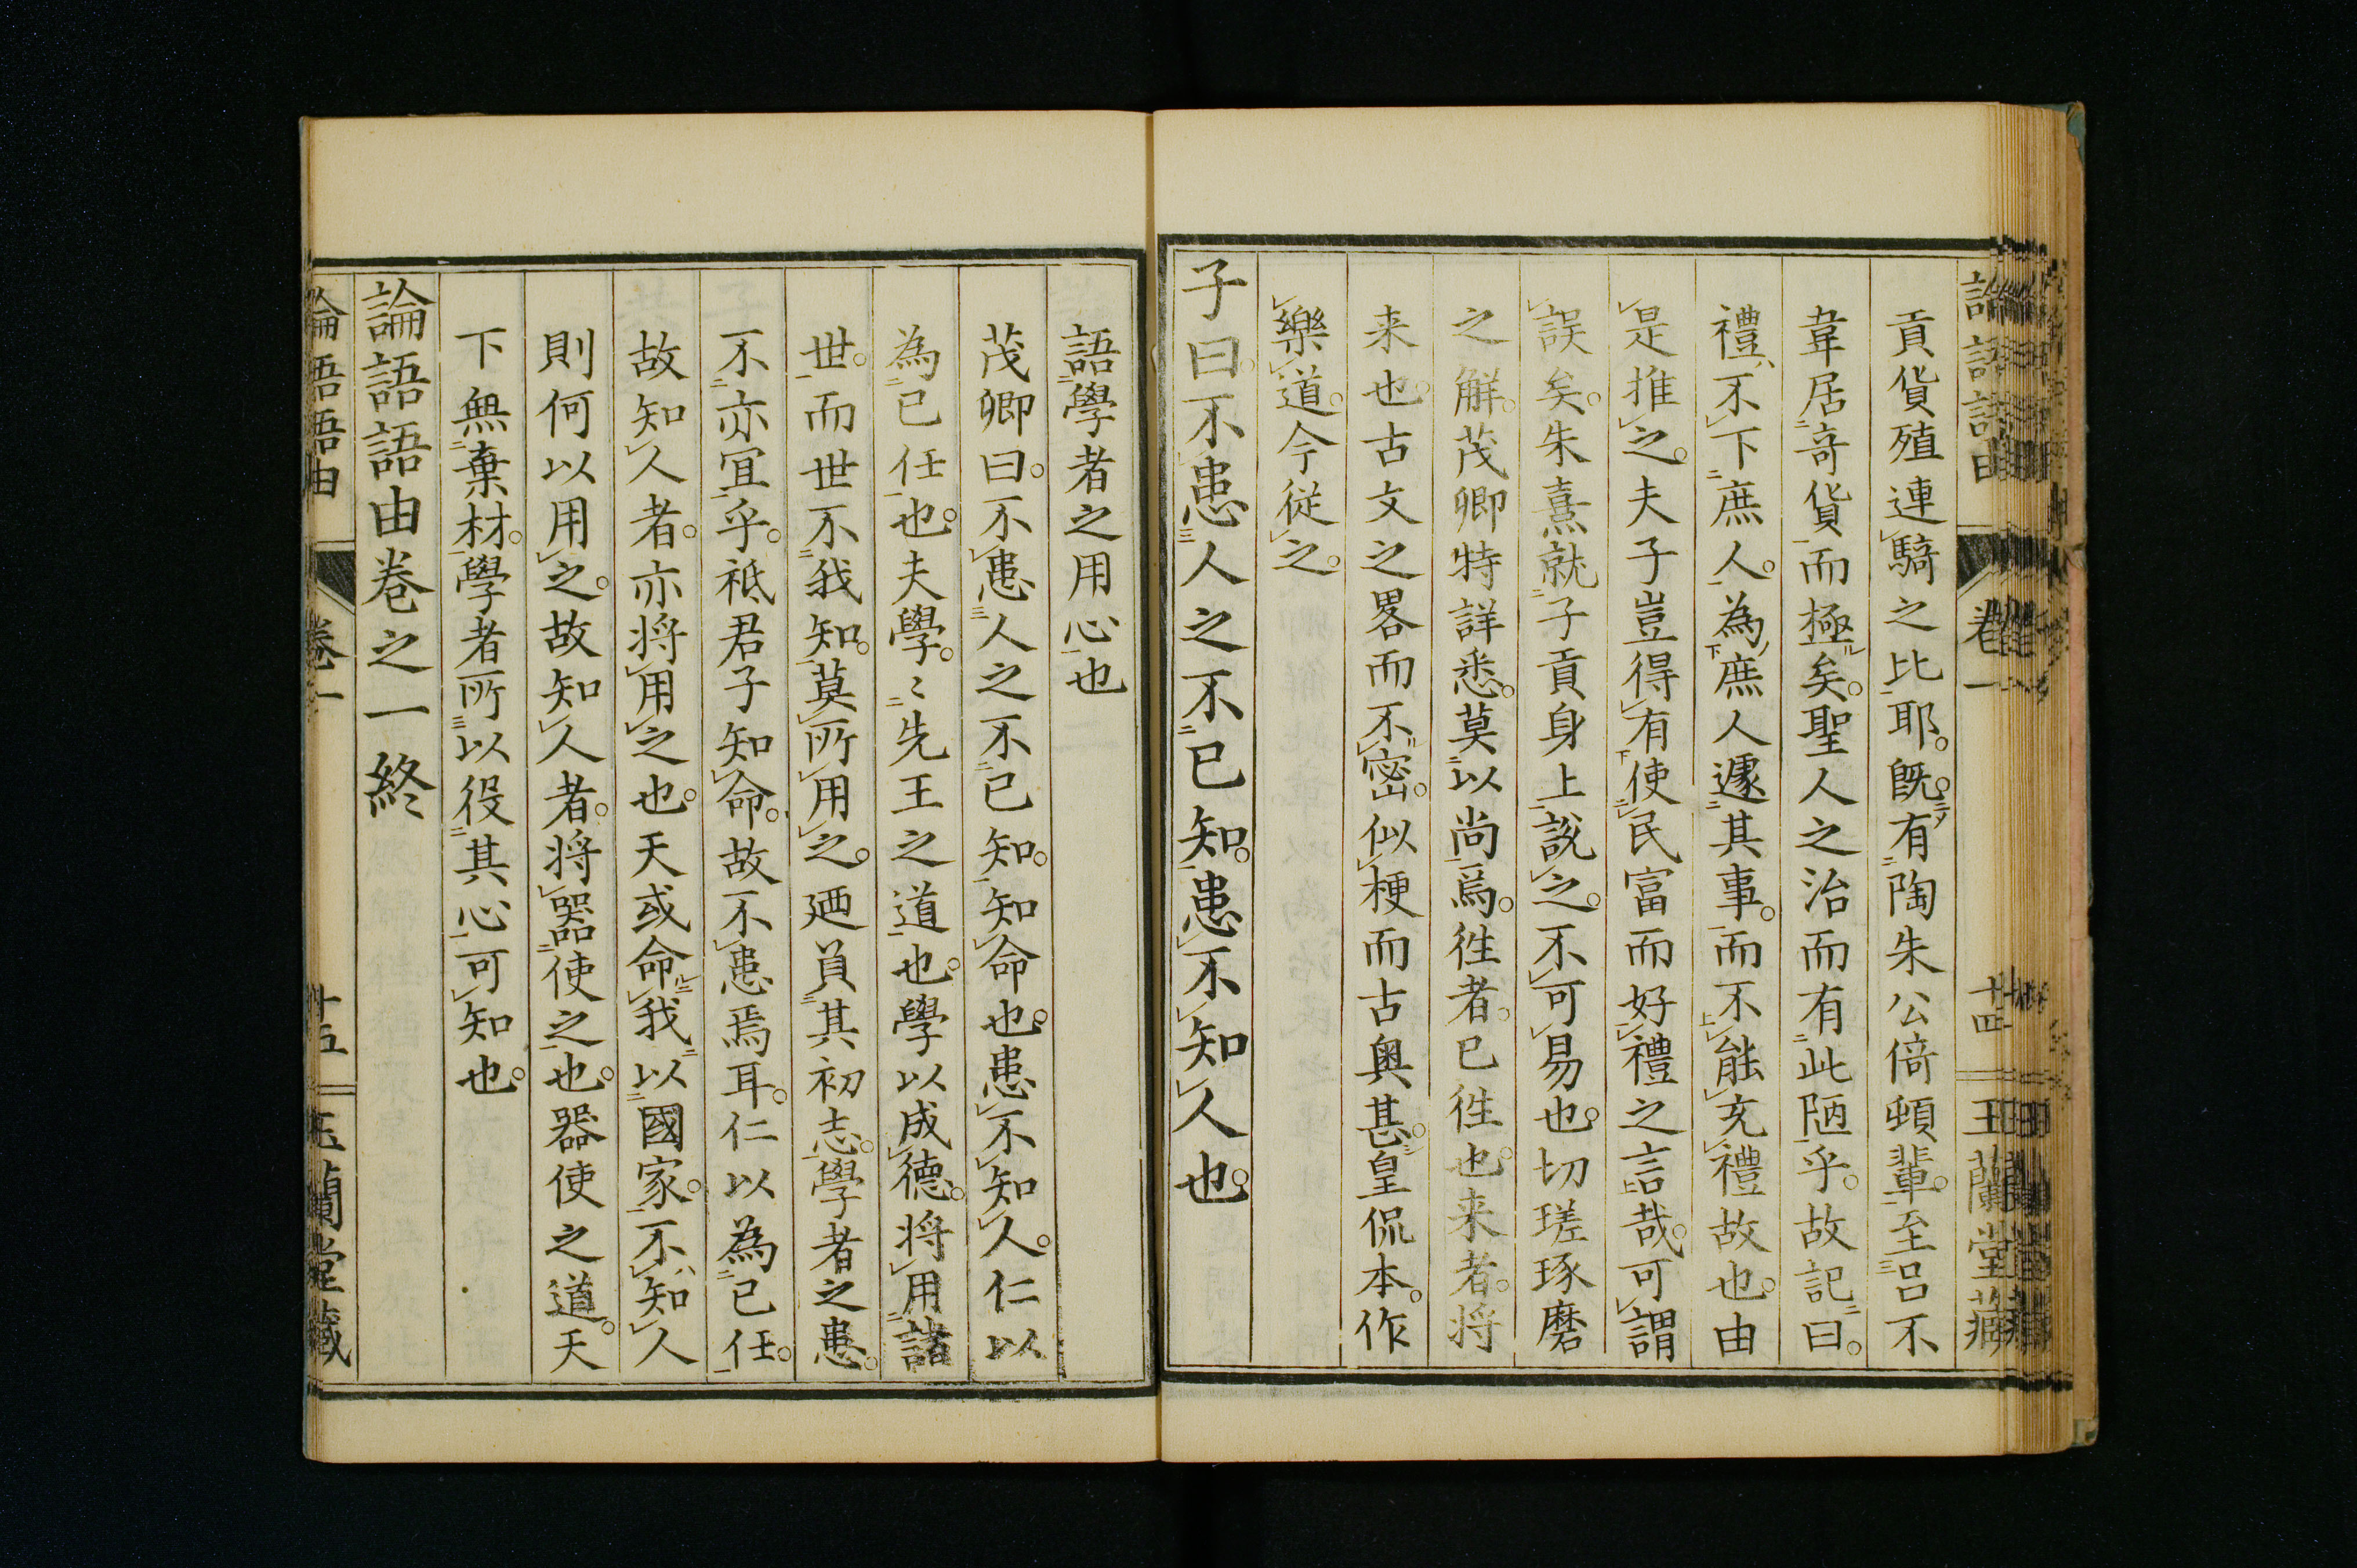 論語語由 卷一 十四 玉蘭堂藏
貢貨殖連騎之比耶。既有陶朱公倚頓輩。至呂不
韋居奇貨而極矣。聖人之治而有此陋乎。故記曰。
禮不下庶人。為庶人遽其事。而不能充禮故也。由
是推之。夫子豈得有使民富而好禮之言哉。可謂
誤矣。朱熹就子貢身上說之。不可易也。切瑳琢磨
之解。茂卿特詳悉。莫以尚焉。徃者。已徃也。来者。将
来也。古文之畧而不密。似梗而古奥甚。皇侃本。作
樂道。今從之。
子曰。不患人之不已知。患不知人也。
語學者之用心也
茂卿曰。不患人之不已知。知命也。患不知人。仁以
為已任也。夫學。〻先王之道也。學以成德。将用諸
世。而世不我知。莫所用之。廼負其初志。學者之患。
不亦宜乎。祗君子知命。故不患焉耳。仁以為已任。
故知人者。亦将用之也。天或命我以國家。不知人
則何以用之。故知人者。将器使之也。器使之道。天
下無棄材。學者所以役其心可知也。
論語語由卷之一終
論語語由 卷一 十五 玉蘭堂藏